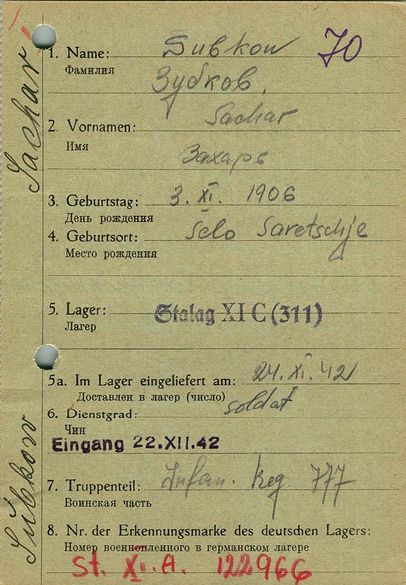 70
1. Name: Subkow
Фамилия Зубков,
2. Vornamen: Sachar
Имя Захаръ
3. Geburtstag: 3. XI. 1906
День рождения
4. Geburtsort: Selo Saretschje
Место рождения
5. Lager: Stalag XI C (311)
Лагер
5a. Im Lager eingeliefert am: 24. XI. 42
Доставлен в лагер (число)
6. Dienstgrad: soldat
Чин
Eingang 22.XII.42
7. Truppenteil: Infan. Reg 777
Воинская часть
8. Nr. der Erkennungsmarke des deutschen Lagers:
Номер военнопленного в германском лагере
St. XI. A. 122966
Subkow Sachar